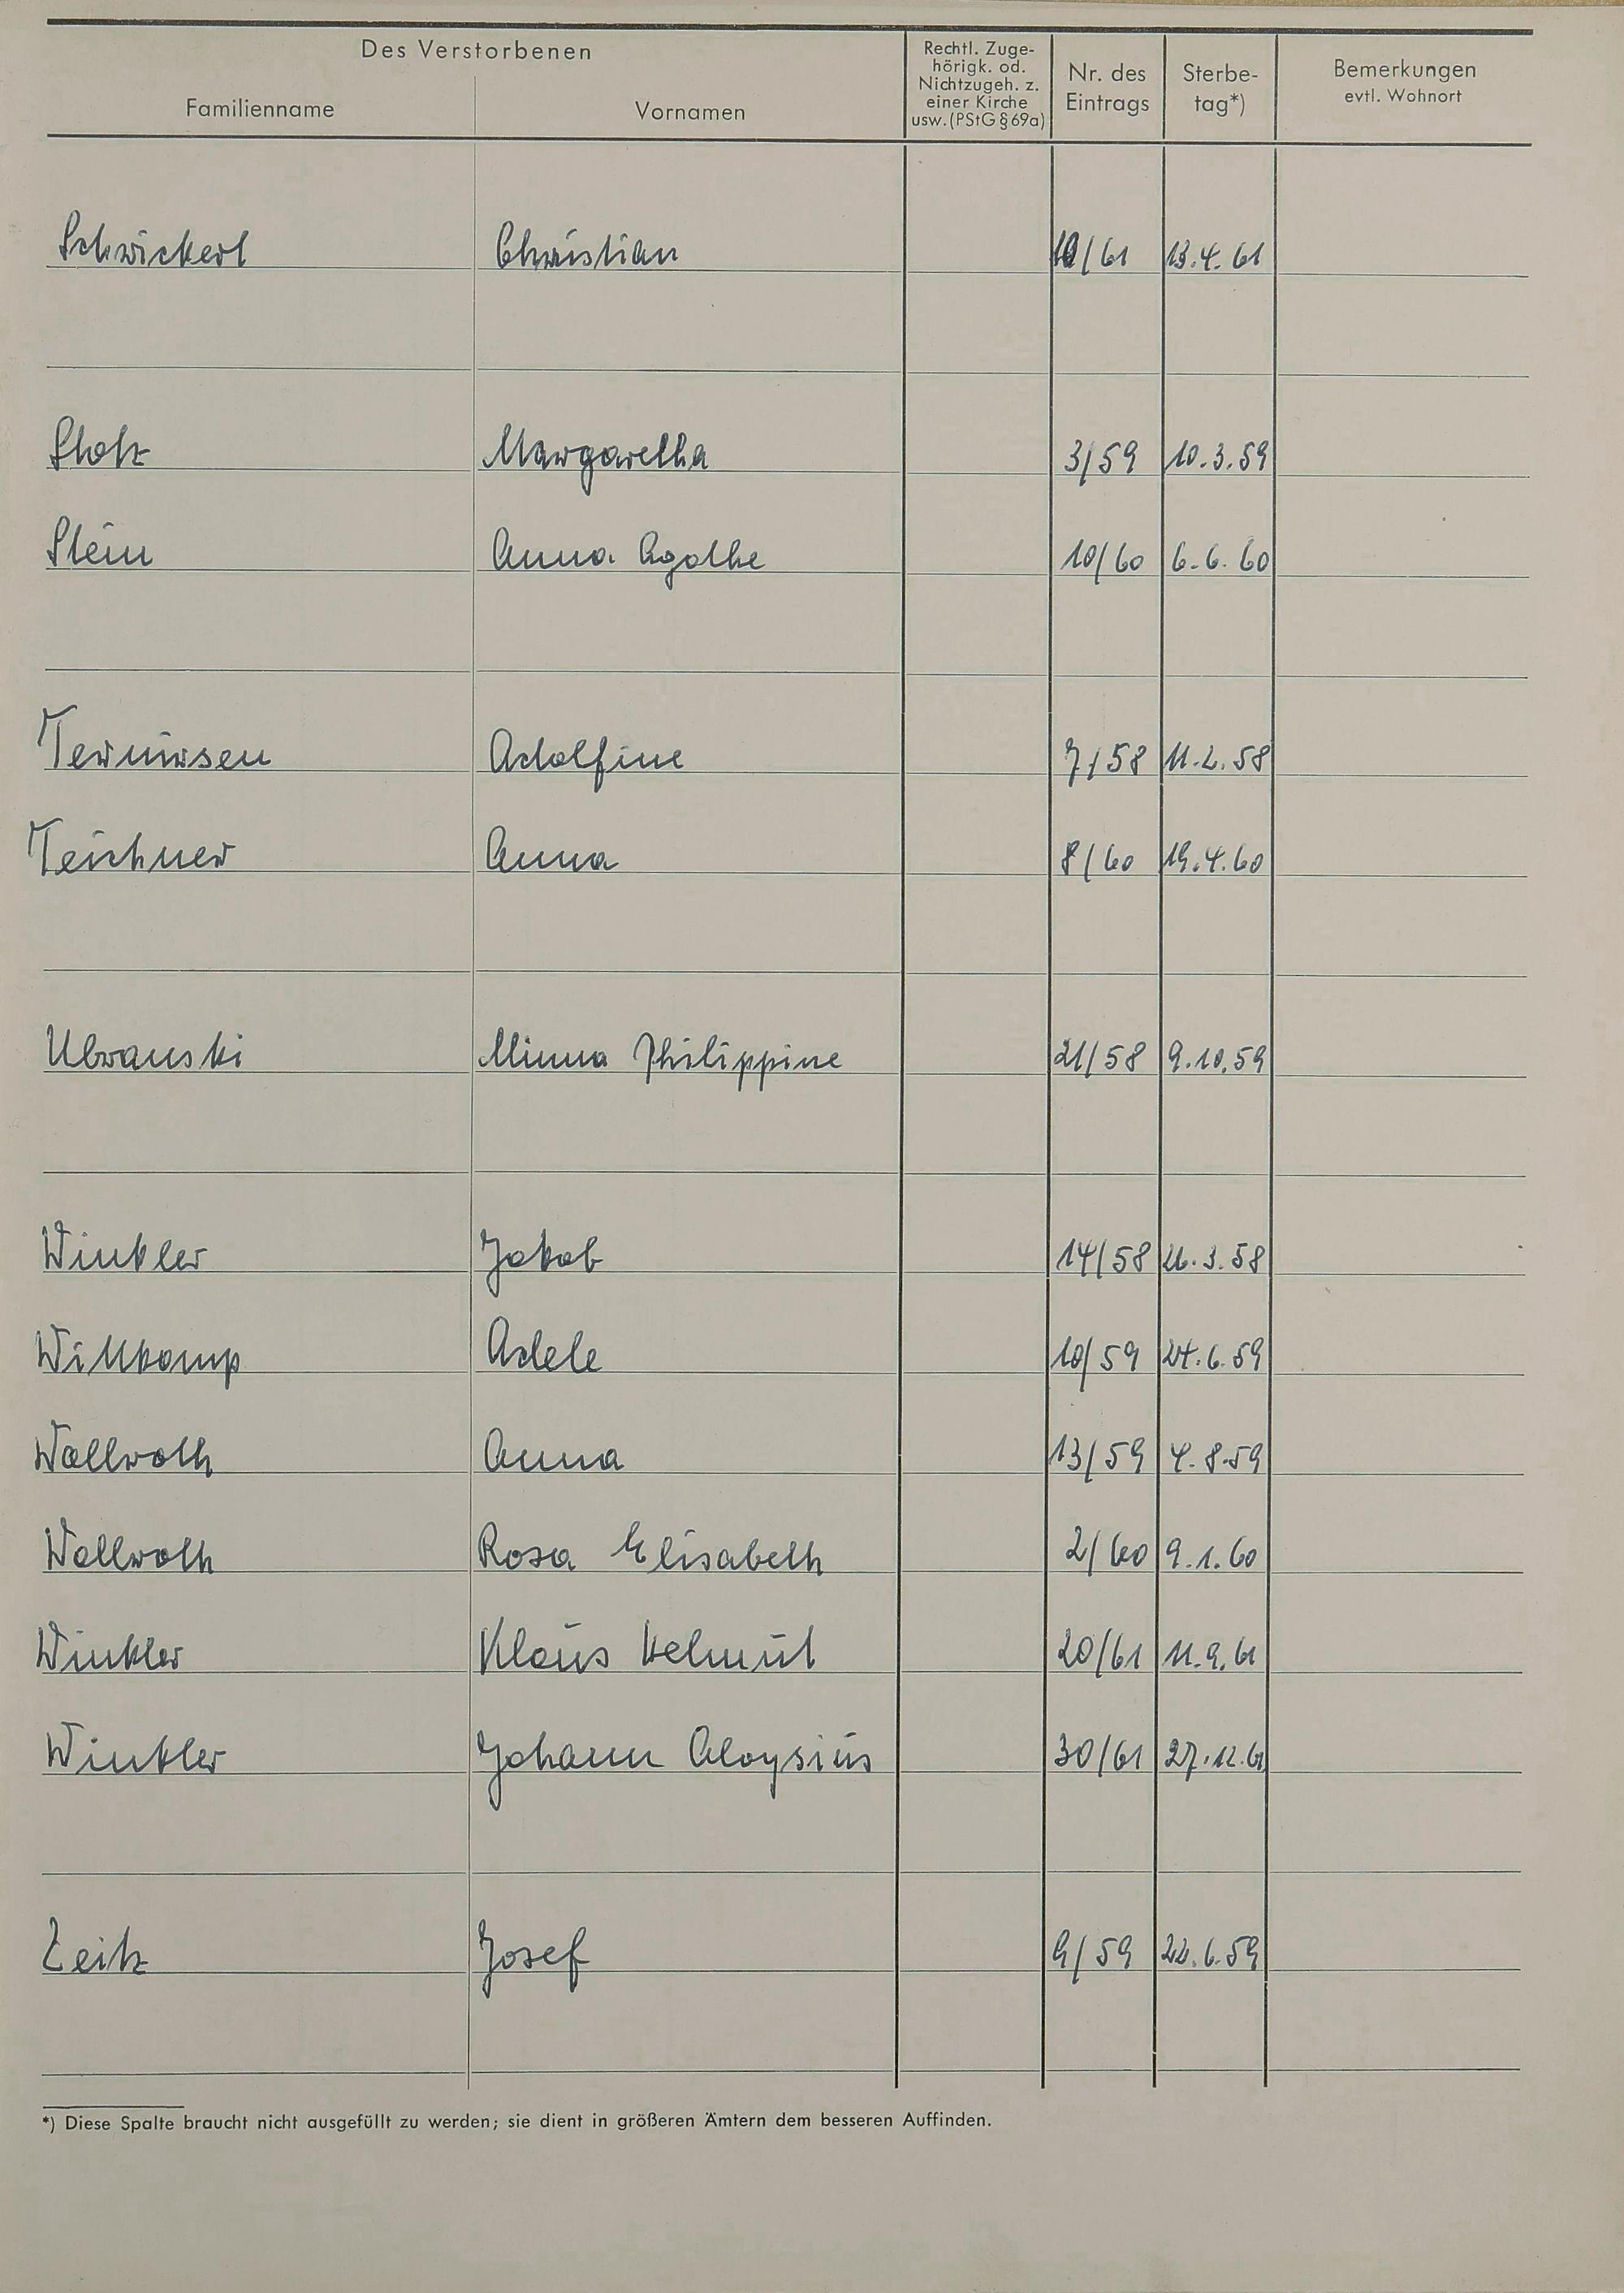 Des Verstorbenen
Familienname Vornamen
Rechtl. Zuge-
hörigk. od.
Nichtzugeh. z.
einer Kirche
usw. (PStG § 69a)
Nr. des
Eintrags
Sterbe-
tag*)
Bemerkungen
evtl. Wohnort
Schwickert Christian /61 13.4.61
Stolz Margaretha 3/59 10.3.59
Stein Anna Agathe 10/60 6.6.60
Adolfine 7/58 11.2.58
Teichner Anna 8/60 19.4.60
Ubranski Minna Philippine 21/58 9.10.59
Winkler Jakob 14/58 26.3.58
Willkomp Adele 10/59 24.6.59
Wallroth Anna 13/59 4.8.59
Wallroth Rosa Elisabeth 2/60 9.1.60
Winkler Klaus Helmut 20/61 11.9.61
Winkler Johann Aloysius 30/61 27.12.61
Zeitz Josef 9/59 22.6.59
*) Diese Spalte braucht nicht ausgefüllt zu werden; sie dient in größeren Ämtern dem besseren Auffinden.